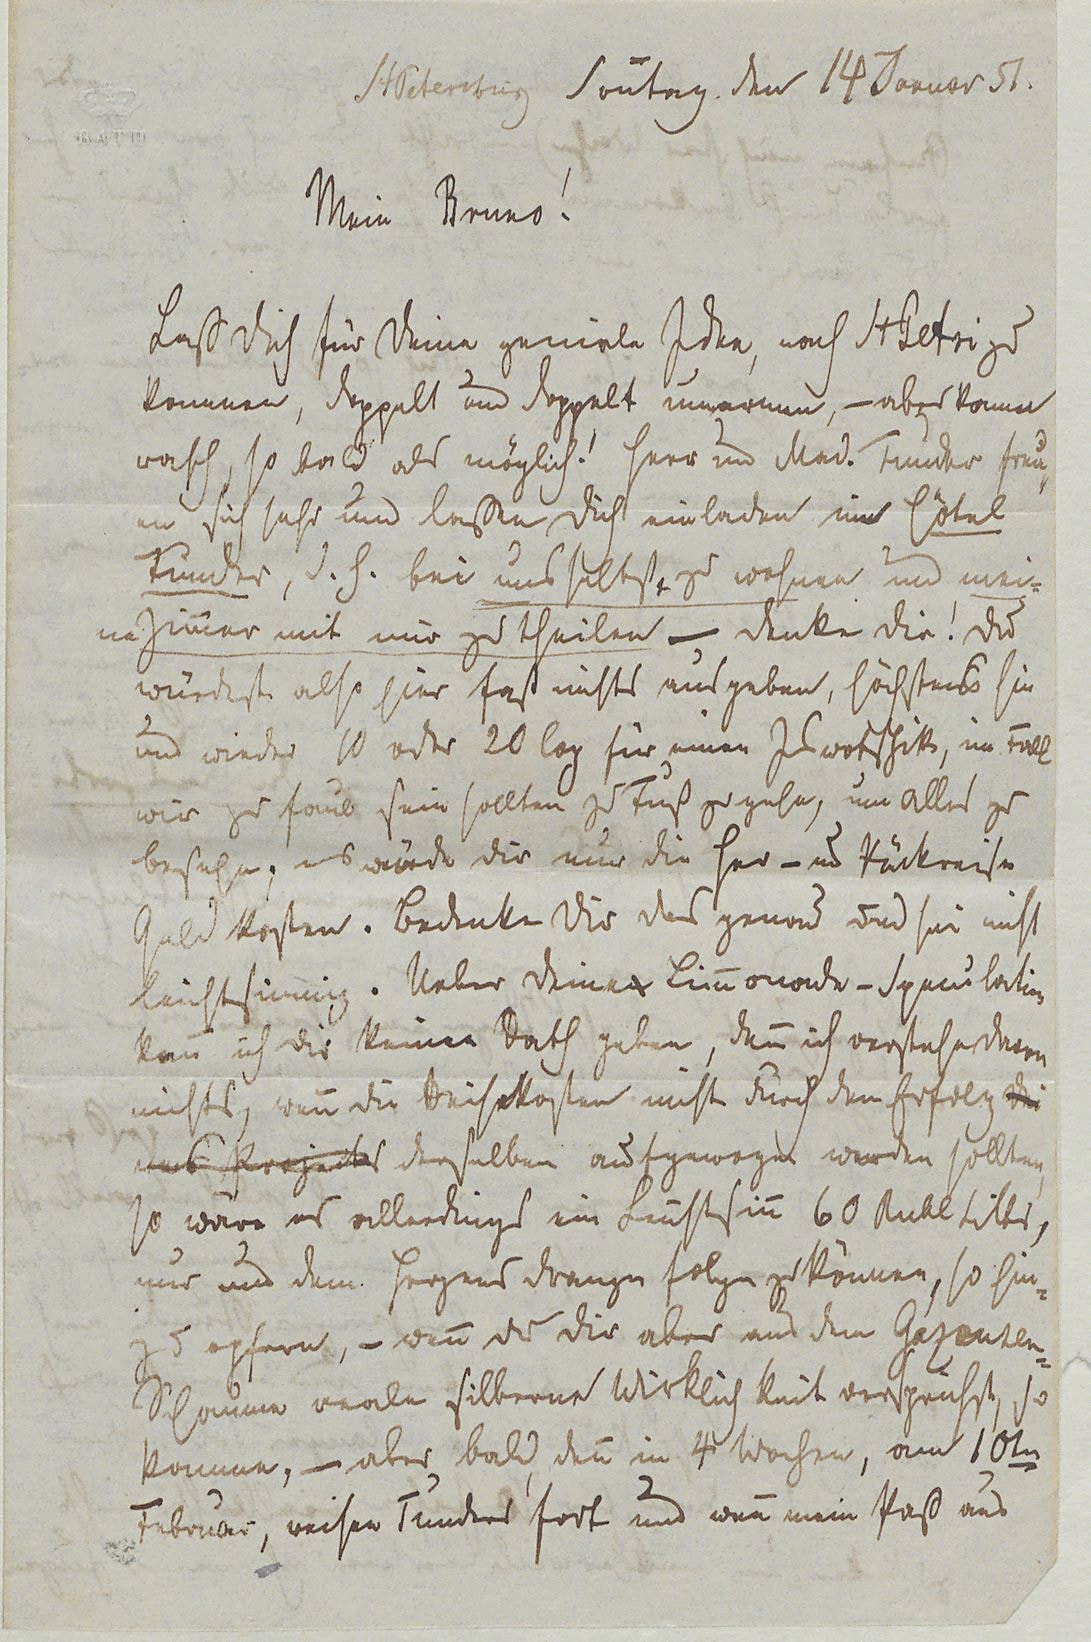 St Petersburg Soñtag. den 14 Januar 51.
Mein Bruno!
Laß Dich für Deine geniale Idee, nach St Petri zu
kommen, doppelt und doppelt umarmen, – aber komm
rasch, so bald als möglich! Herr und Mad. Tunder freu-
en sich sehr und lassen Dich einladen im Hôtel
Tunder, d. h. bei uns selbst, zu wohnen und mei-
ne Zim̄er mit mir zu theilen – denke Dir! Du
würdest also hier fast nichts ausgeben, höchstens hin
und wieder 10 oder 20 Cop für einen Iswotschik, im Fall
wir zu faul sein sollten zu Fuß zu gehn, um Alles zu
besehn; es würde Dir nur die Her- und Rückreise
Geld kosten. Bedenke Dir das genau und sei nicht
leichtsinnig. Ueber Deine Lim̄onade-Speculation
kañ ich Dir keinen Rath geben, deñ ich verstehe davon
nichts, weñ die Reisekosten nicht durch den Erfolg dei
nes Projectes derselben aufgewogen werden sollten,
so wäre es allerdings ein Leichtsiñ 60 Rubl Silbr,
nur um dem Herzens Drange folgen zu können, so hin-
zu opfern, – weñ Du Dir aber aus dem
Schaume reale silberne Wirklichkeit versprichst, so
komme, – aber bald, deñ in 4 Wochen, am 10ten
Februar, reisen Tunders fort und weñ mein Paß aus